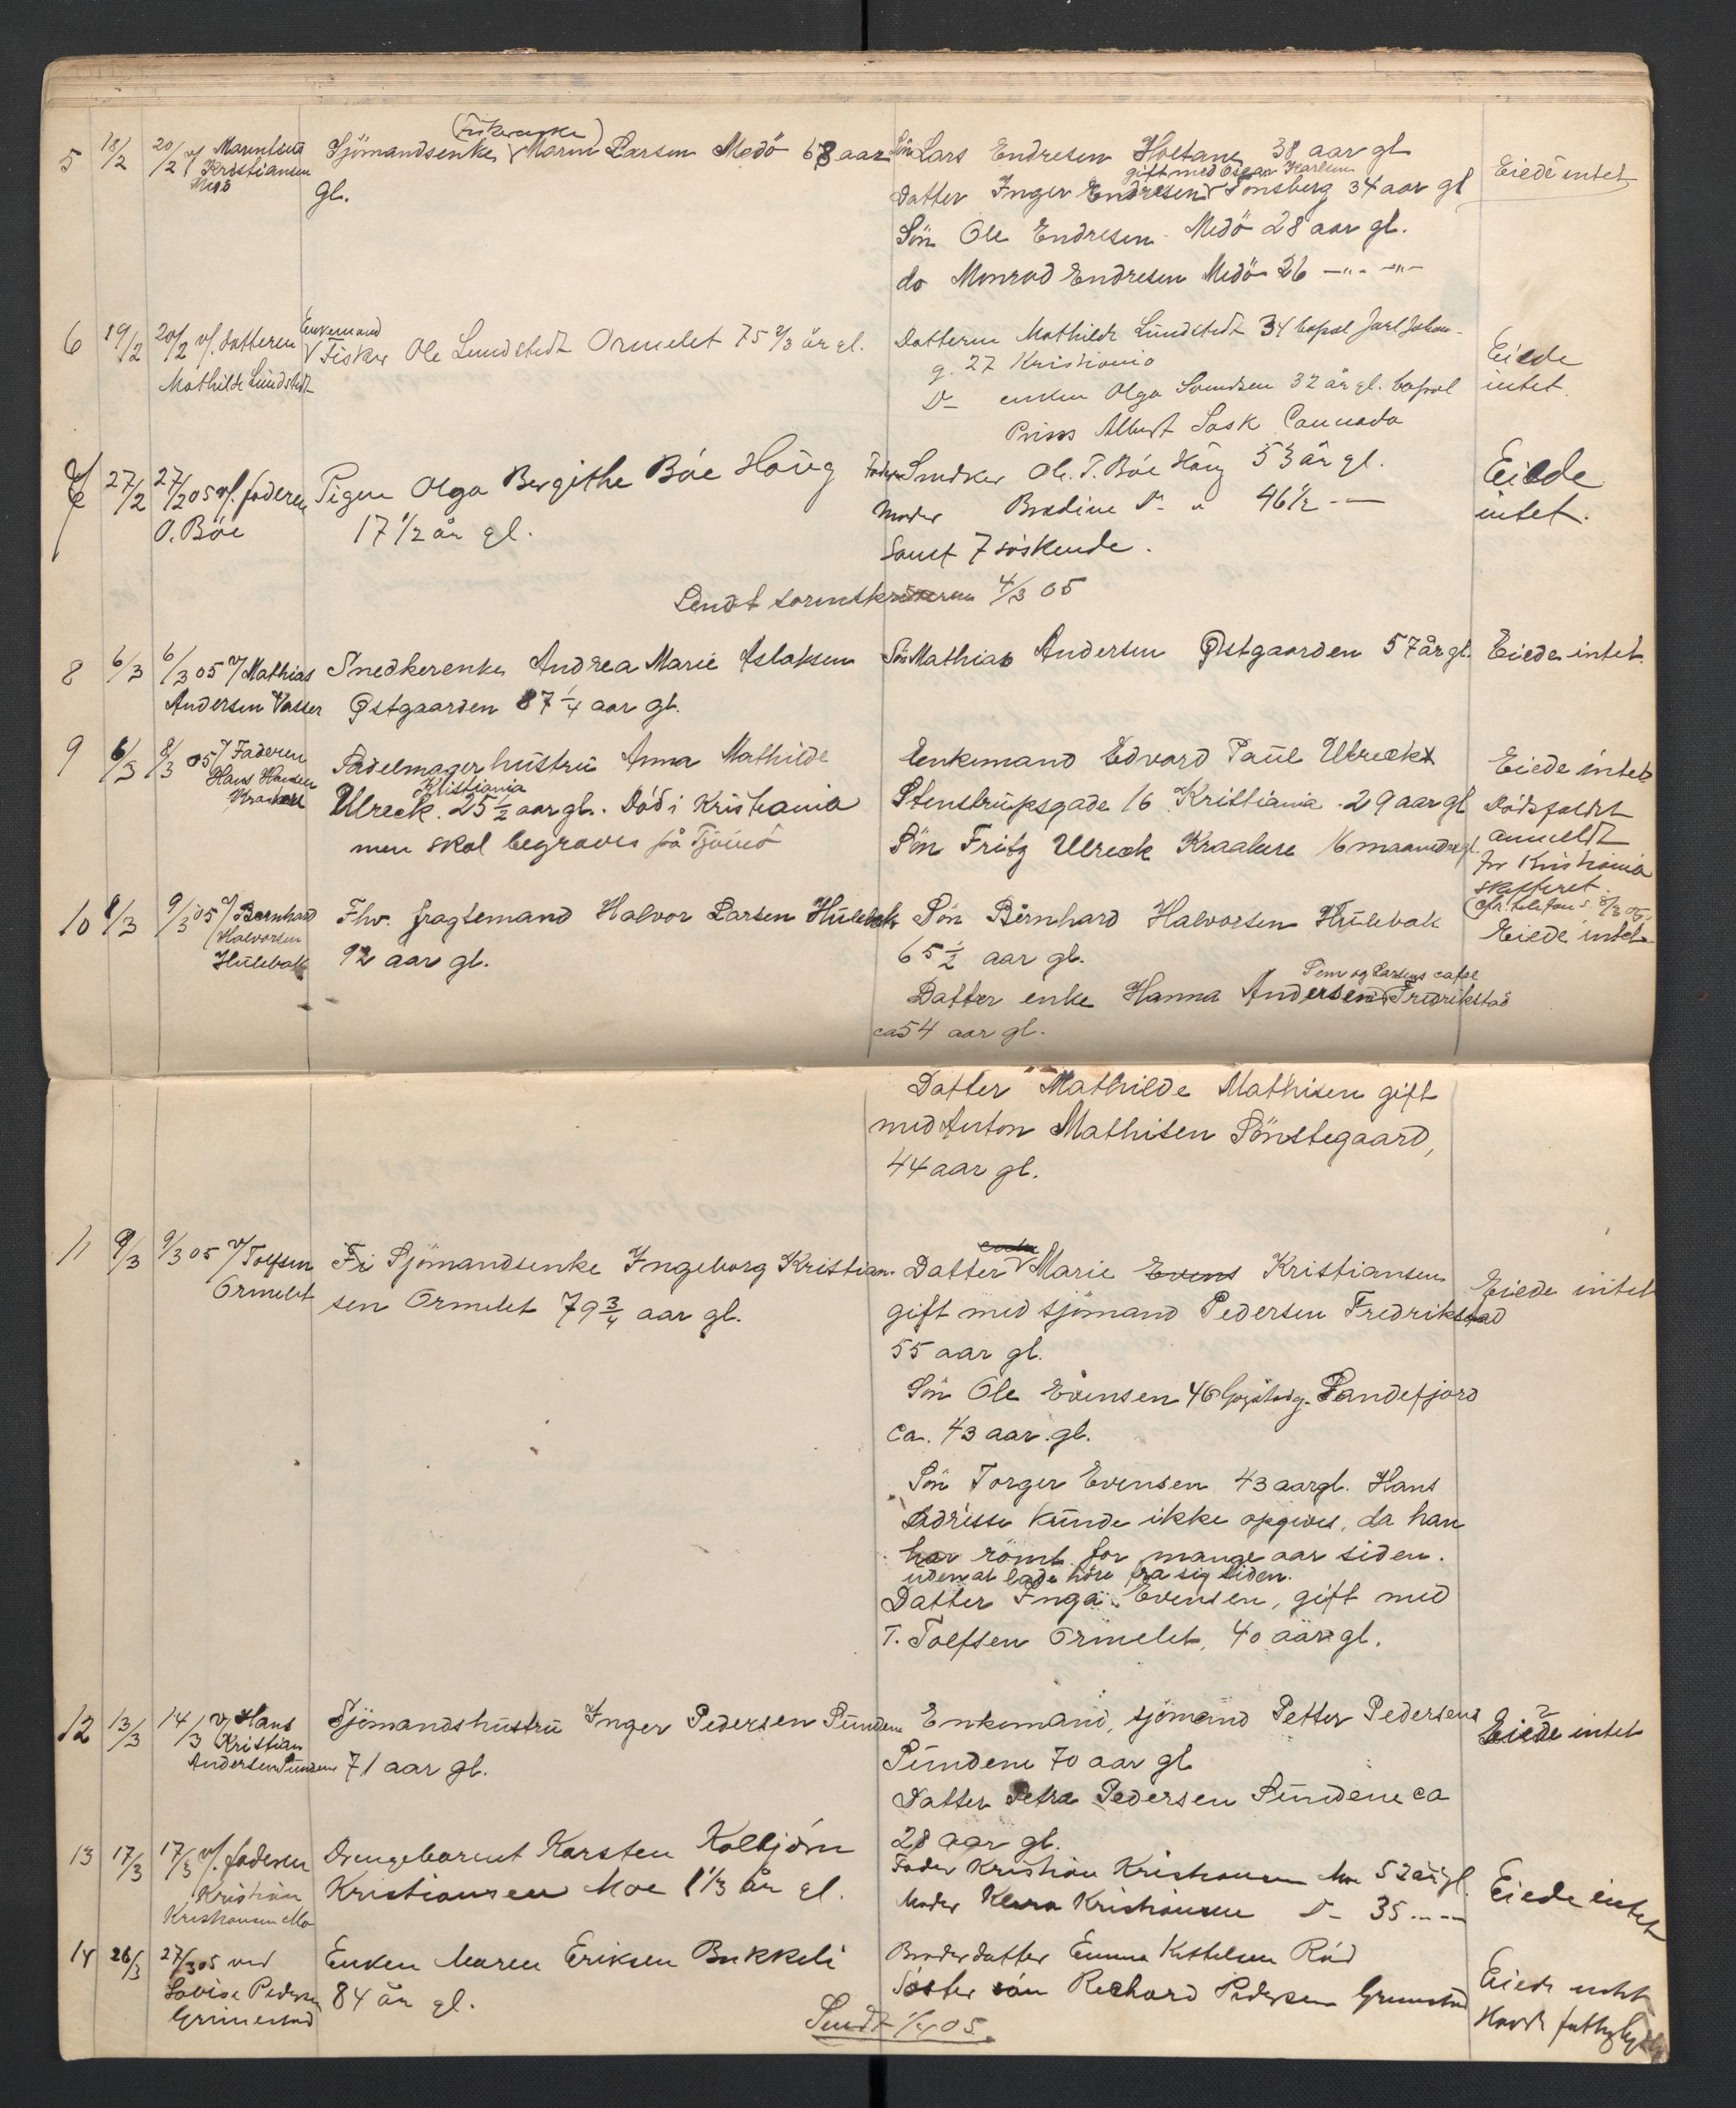 5 18/2 20/2 v/ Marentius
Kristiansen
Medö
(Fiskerenke)
Sjömandsenke Maren Larsen Medö 68 aar
gl.
Sön Lars Endresen Holtane 38 aar gl
gift med Oskar Karlsen
Datter Inger Endresen Tönsberg 34 aar gl
Sön Ole Endresen Medö 28 aar gl.
do Monrad Endresen Medö 26 —"— —"—
Eiede intet
6 19/2 20/2 v/. datteren
Mathilde Lundstedt
Enkemand
Fisker Ole Lundstedt Ormelet 75 2/3 år gl.
Datteren Mathilde Lundstedt 34 bopæl Jarl Johan-
g. 27 Kristiania
D— enken Olga Svendsen 32 år gl. bopæl
Prins Albert Sask Cannada
Eiede
intet.
7 27/2 27/2 05 v/. faderen
O. Böe
Pigen Olga Bergithe Böe Houg
17 1/2 år gl.
Fader Snedker Ole T. Böe Haug 53 år gl.
Moder Bredine D— " 46 1/2 — —
Samt 7 söskende.
Eiede
intet.
Sendt sorenskriveren 4/3 05
8 6/3 6/3 05 v/ Mathias
Andersen Vasser
Snedkerenke Andrea Marie Aslaksen
Østgaarden 87 1/4 aar gl.
Sön Mathias Andersen Østgaarden 57 år gl.
Eiede intet.
9 6/3 8/3 05 v/ Faderen
Hans Hansen
Kraakere
Sadelmagerhustru Anna Mathilde
Kristiania
Ulreck. 25 1/2 aar gl. Död i Kristiania
men skal begraves på Tjömö
Enkemand Edvard Paul Ulreck
Stenstrupsgade 16 Kristiania. 29 aar gl
Sön Fritz Ulreck Kraakere 16 maaneder gl.
Eiede intet
Dödsfaldet
anmeldt
for Kristiania
skifteret.
(pr. telefon s. 8/3 05.)
10 8/3 9/3 05 v/ Bernhard
Halvorsen
Hulebak
Fhv. fragtemand Halvor Larsen Hulebak
92 aar gl.
Sön Bernhard Halvorsen Hulebak
65 1/2 aar gl.
Datter enke Hanna Andersen Fredrikstad
ca 54 aar gl.
Eiede intet
Datter Mathilde Mathisen gift
med Anton Mathisen Sönstegaard,
44 aar gl.
11 9/3 9/3 05 v/ Tolfsen
Ormelet
Fi Sjömandsenke Ingeborg Kristian-
sen Ormelet 79 3/4 aar gl.
enke
Datter Marie Evens Kristiansen
gift med sjömand Pedersen Fredrikstad
55 aar gl.
Sön Ole Evensen 46 Sandefjord
ca. 43 aar gl.
Sön Torger Evensen 43 aar gl. Hans
Adresse kunde ikke opgives, da han
har römt for mange aar siden.
uden at lade höre fra sig siden.
Datter Inga Evensen, gift med
T. Tolfsen Ormelet, 40 aar gl.
Eiede intet
12 13/3 14/3 v/ Hans
Kristian
Andersen Sundene
Sjömandshustru Inger Pedersen Sundene
71 aar gl.
Enkemand, sjömand Petter Pedersen
Sundene 70 aar gl
Datter Petra Pedersen Sundene ca
28 aar gl.
Eiede intet
13 17/3 17/3 v/. faderen
Kristian
Kristiansen Mo
Drengebarnet Karsten Kolbjörn
Kristiansen Moe 1 1/3 år gl.
Fader Kristian Kristiansen Moe 52 år gl.
Moder Klara Kristiansen D— 35 — —
Eiede intet
14 26/3 27/3 05 ved
Lovise Pedersen
Grimestad
Enken Maren Eriksen Bukkeli
84 år gl.
Broderdatter Emma Kettelsen Röd
Söster sön Richard Pedersen Grimestad
Eiede intet
Havde
Sendt 1/4 05.